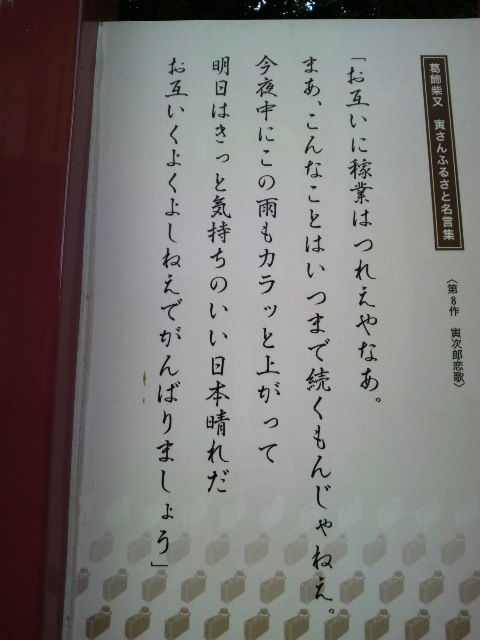 葛飾柴又 寅さんふるさと名言集
〈第8作 寅次郎恋歌〉
「お互いに稼業はつれえやなあ。
まあ、こんなことはいつまで続くもんじゃねえ。
今夜中にこの雨もカラッと上がって
明日はきっと気持ちのいい日本晴れだ
お互いくよくよしねえでがんばりましょう」